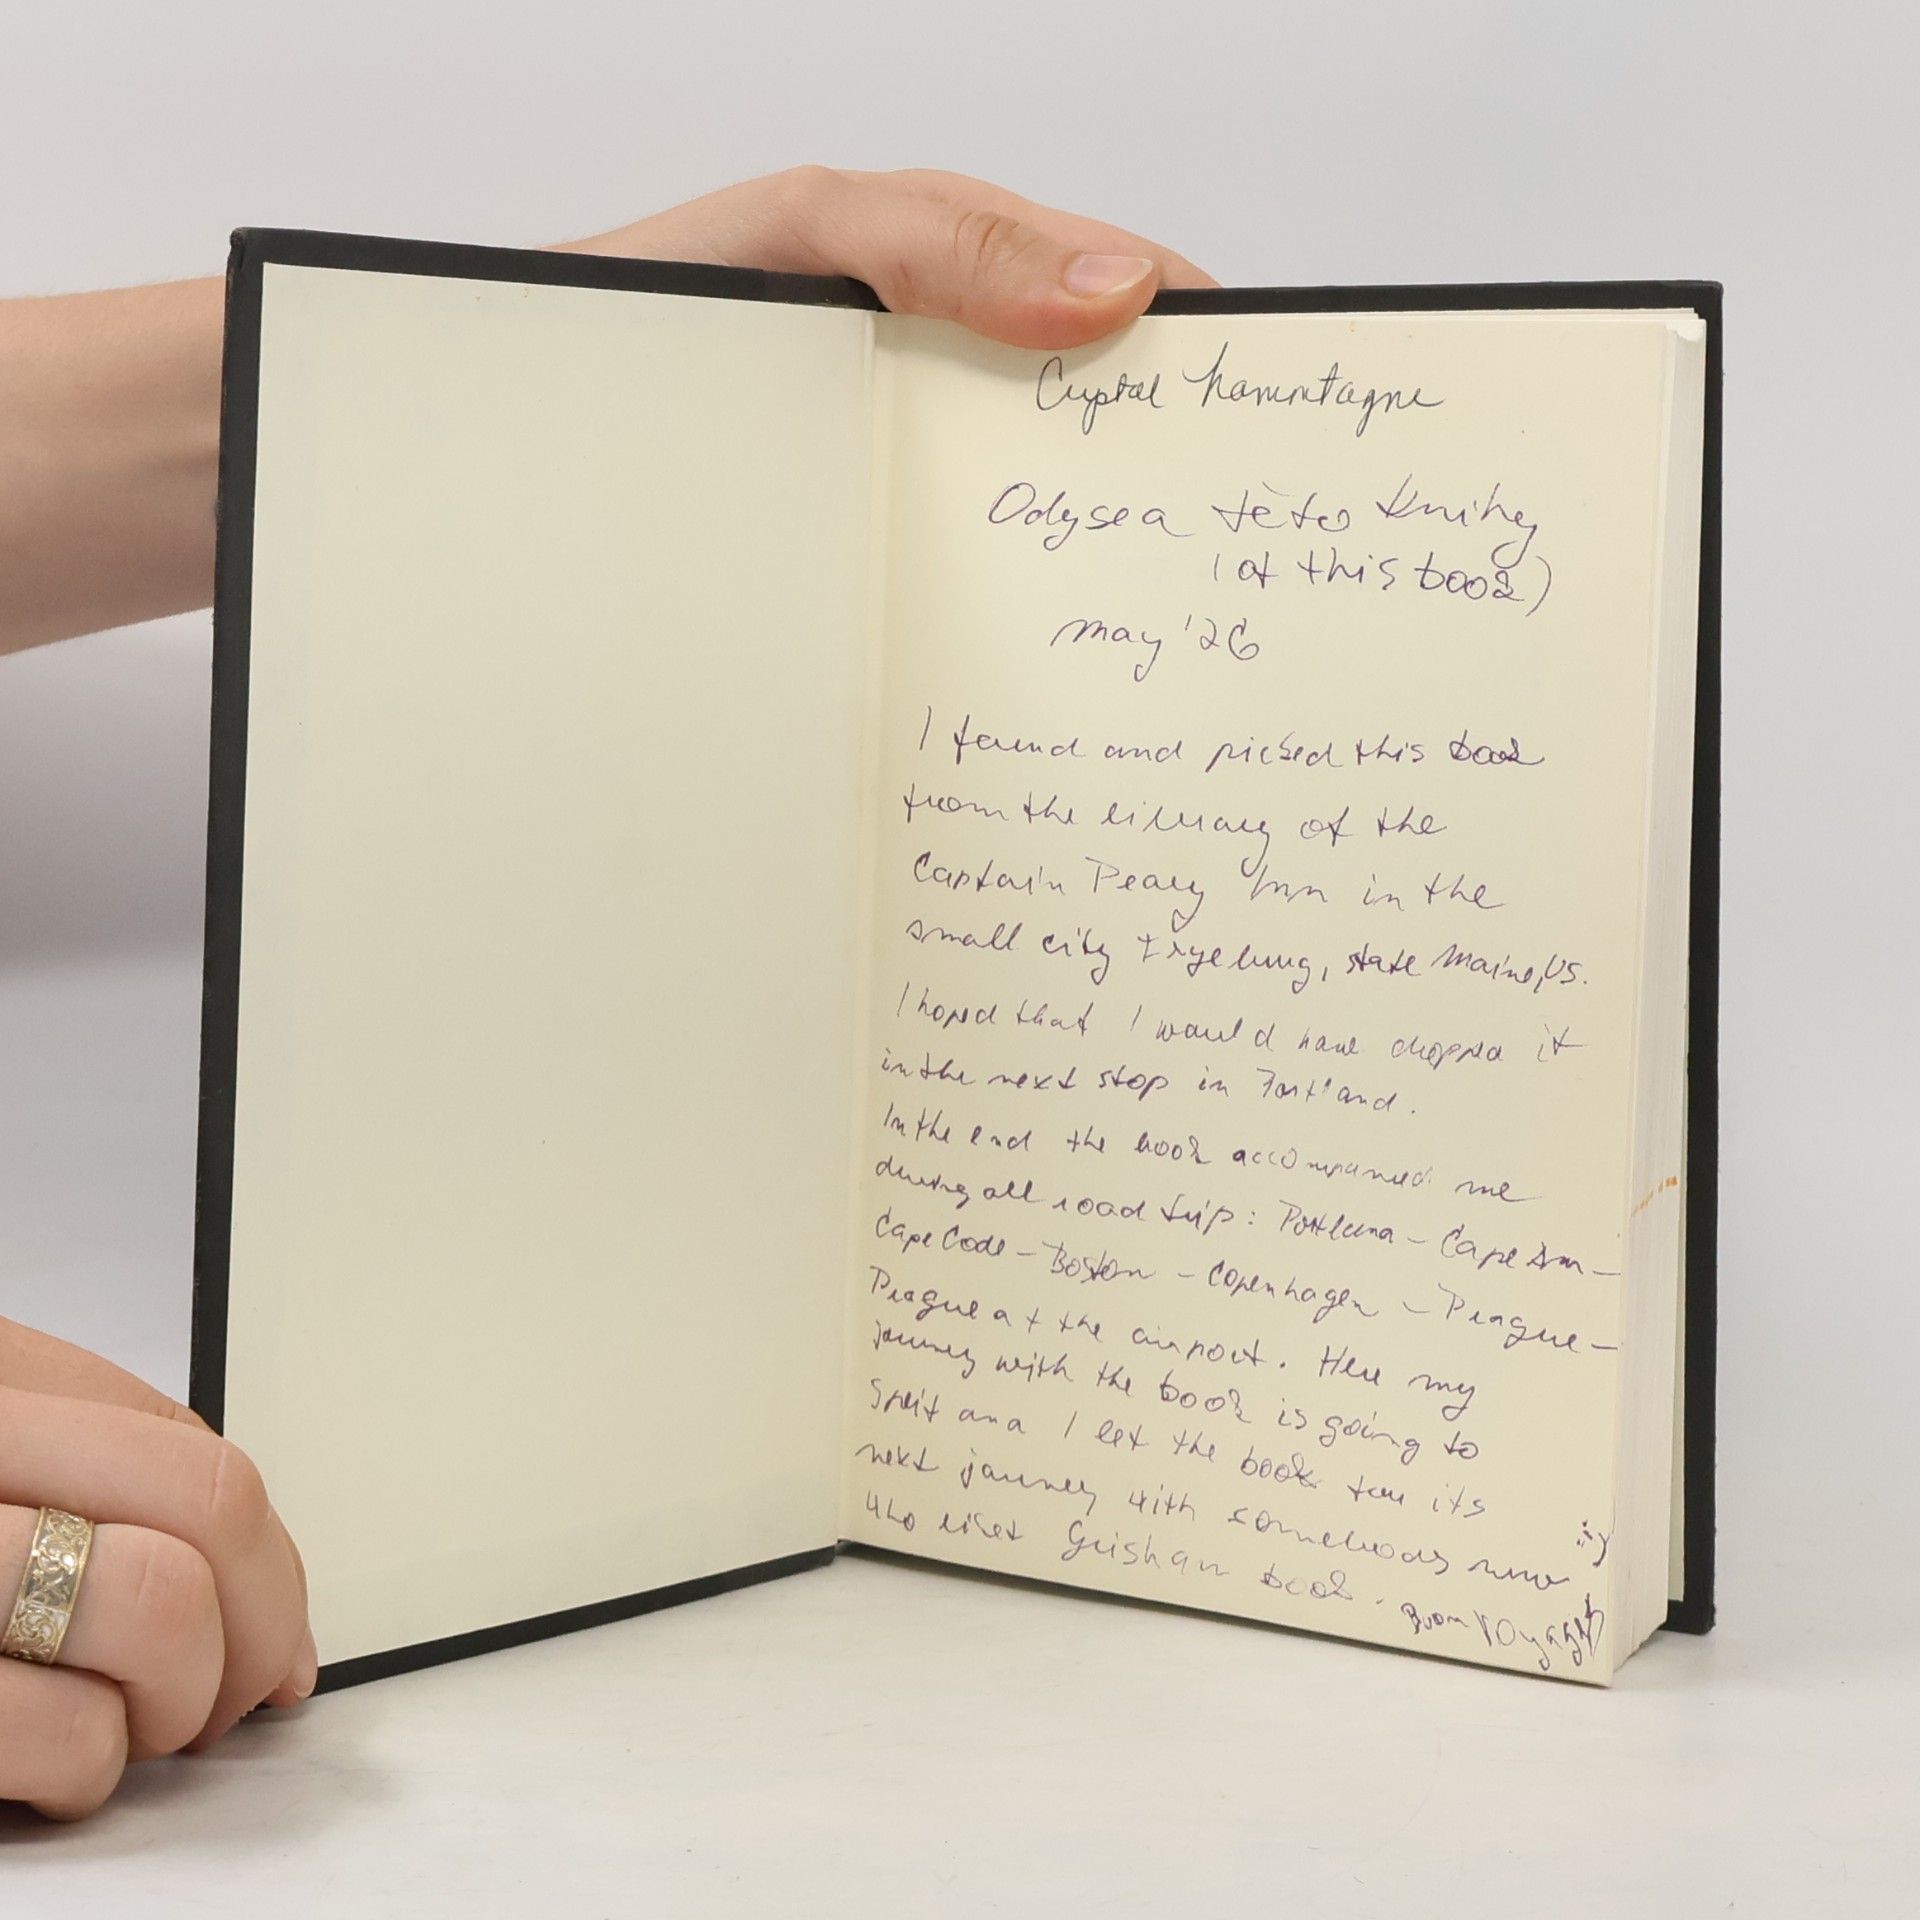 Crystal
Odysea této knihy
(of this book)
may '26
I found and picked this book
from the library of the
Captain Peary Inn in the
small city Fryeburg, state Maine, US.
I hoped that I would have dropped it
in the next stop in Portland.
In the end the book accompanied me
during all road trip: Portland – Cape Ann –
Cape Code – Boston – Copenhagen – Prague –
Prague at the airport. Here my
journey with the book is going to
split and I let the book for its
next journey with somebody new
who likes Grisham book.
Buon Voyage